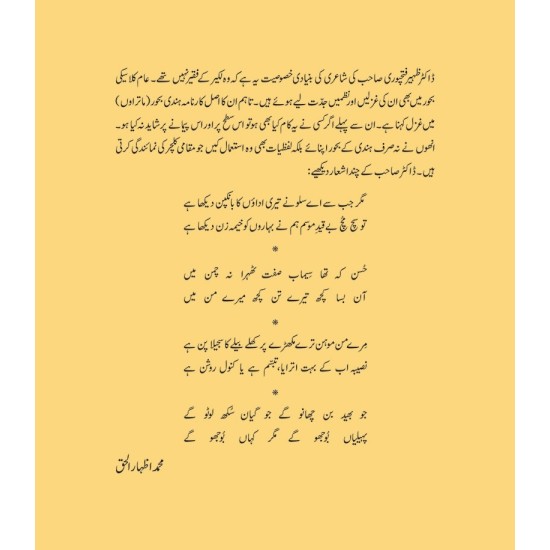 ڈاکٹر ظہیر فتحپوری صاحب کی شاعری کی بنیادی خصوصیت یہ ہے کہ وہ لکیر کے فقیر نہیں تھے۔ عام کلاسیکی
بحور میں بھی ان کی غزلیں اور نظمیں جدت لیے ہوئے ہیں۔ تاہم ان کا اصل کارنامہ ہندی بحور (ماتراوں)
میں غزل کہنا ہے۔ ان سے پہلے اگر کسی نے یہ کام کیا بھی ہو تو اس سطح پر اور اس پیمانے پر شاید نہ کیا ہو۔
انھوں نے نہ صرف ہندی کے بحور اپنائے بلکہ لفظیات بھی وہ استعمال کیں جو مقامی کلچر کی نمائندگی کرتی
ہیں۔ ڈاکٹر صاحب کے چند اشعار دیکھیے:
مگر جب سے اے سلونے تیری اداؤں کا بانکپن دیکھا ہے
تو سچ مچ بے قیدِ موسم ہم نے بہاروں کو خیمہ زن دیکھا ہے
*
حُسن کہ تھا سیماب صفت ٹھہرا نہ چمن میں
آن بسا کچھ تیرے تن کچھ میرے من میں
*
مِرے من موہن ترے مکھڑے پر کھلے بیلے کا سجیلا پن ہے
نصیبہ اب کے بہت اترایا، تبسّم ہے یا کنول روشن ہے
*
جو بھید بن چھانو گے جو گیان سُکھ لوٹو گے
پہیلیاں بُوجھو گے مگر کہاں بُوجھو گے
محمد اظہار الحق